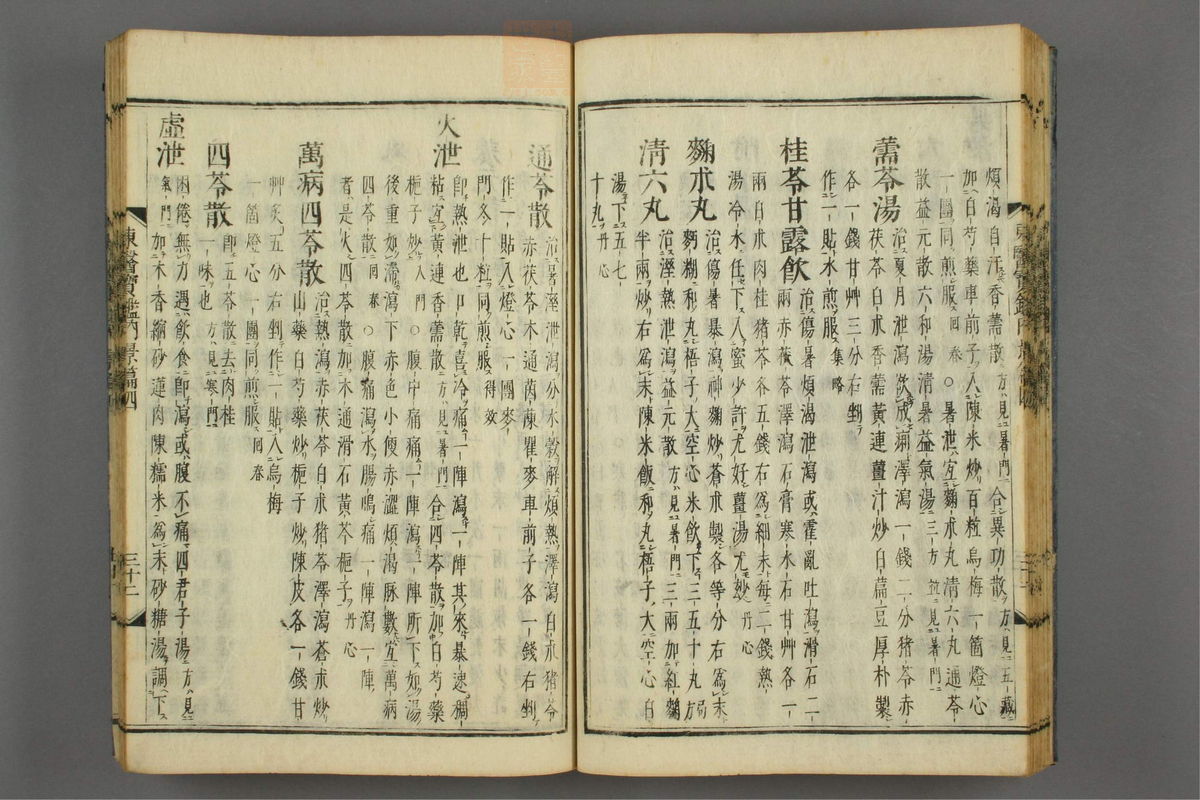 煩渴自汗香薷散方見暑門合異功散方見五藏
加白芍藥車前子入陳米炒百粒烏梅一箇燈心
一團同煎服回春○暑泄宜麴朮丸清六丸通苓
散益元散六和湯清暑益氣湯三方並見暑門
薷苓湯治夏月泄瀉欲成痢澤瀉一錢二分猪苓赤
茯苓白朮香薷黃連薑汁炒白扁豆厚朴製
各一錢甘艸三分右剉
作一貼水煎服集略
桂苓甘露飮治傷暑煩渴泄瀉或霍亂吐瀉滑石二
兩赤茯苓澤瀉石膏寒水石甘艸各一
兩白朮肉桂猪苓各五錢右爲細末每二錢熱
湯冷水任下入蜜少許尤好薑湯尤妙丹心
麴朮丸治傷暑暴瀉神麴炒蒼朮製各等分右爲末
麪糊和丸梧子大空心米飮下三五十丸局方
淸六丸治溼熱泄瀉益元散方見暑門三兩加紅麴
半兩炒右爲末陳米飯和丸梧子大空心白
湯下五七
十丸丹心
通苓散治暑溼泄瀉分水穀解煩熱澤瀉白朮猪苓
赤茯苓木通茵蔯瞿麥車前子各一錢右剉
作一貼入燈心一團麥
門冬十粒同煎服得效
火泄卽熱泄也口乾喜冷痛一陣瀉一陣其來暴速稠
粘宜黃連香薷散方見暑門合四苓散加白芍藥
梔子炒入門○腹中痛痛一陣瀉一陣所下如湯
後重如滯瀉下赤色小便赤澁煩渴脉數宜萬病
四苓散回春○腹痛瀉水腸鳴痛一陣瀉一陣
者是火四苓散加木通滑石黃芩梔子丹心
萬病四苓散治熱瀉赤茯苓白朮猪苓澤瀉蒼朮炒
山藥白芍藥炒梔子炒陳皮各一錢甘
艸炙五分右剉作一貼入烏梅
一箇燈心一團同煎服回春
四苓散卽五苓散去肉桂
一味也方見寒門
虛泄困倦無力遇飮食卽瀉或腹不痛四君子湯方見
氣門加木香縮砂蓮肉陳糯米爲末砂糖湯調下
東醫寶鑑內景篇四
三十二